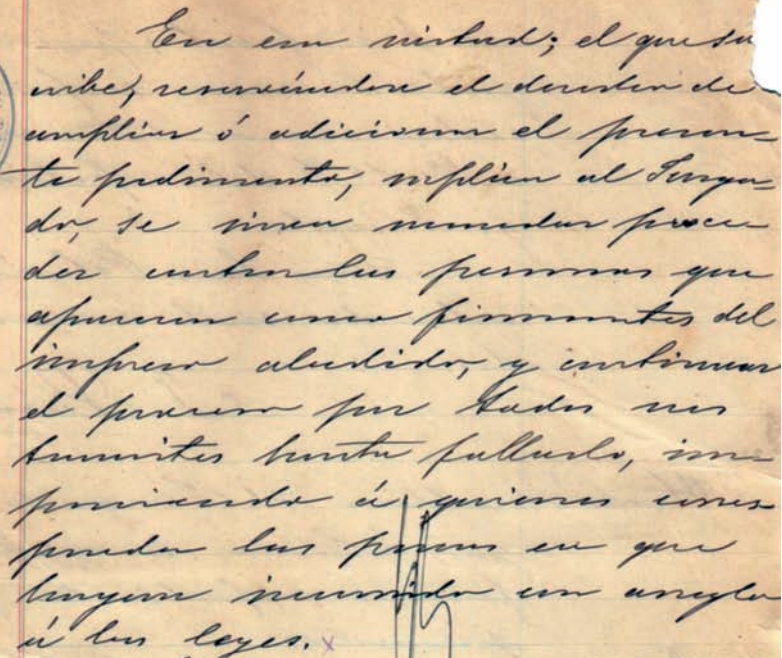 En esa virtud; el que su
cribe, reservándose el derecho de
ampliar ó adicionar el presen-
te pedimento, suplica al Juzga-
do, se sirva mandar proce
der contra las personas que
aparecen como firmantes del
impreso aludido, y continuar
el proceso por todos sus
tramites hasta fallarlo, im-
poniendo á quienes corres
ponda las penas en que
hayan incurrido con arreglo
á las leyes.